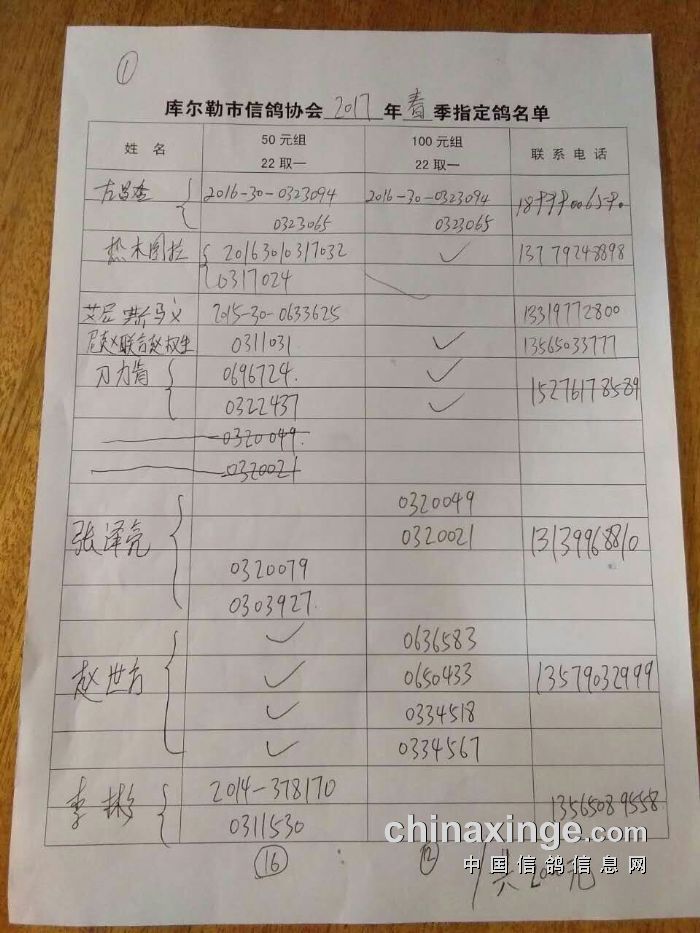 ①
库尔勒市信鸽协会 2017 年 春 季指定鸽名单
姓 名 50元组 22取一 100元组 22取一 联 系 电 话
2016-30-0323094 2016-30-0323094
0323065 0323065
热木图拉 20163010317032 ✓ 13779248898
0317024
艾尼 斯马义 2015-30-0633625 13319772800
赵权生 0311031 ✓ 13565033777
刁力肯 0696724 ✓ 15276178589
0322437 ✓
0320049
0320021
0320049
张泽亮 0320021 13139968810
0320079
0303927
✓ 0636583
赵世方 ✓ 0650433 13579032999
✓ 0334518
✓ 0334567
李彬 2014-378170 13565089558
0311530
⑯ ⑫ 共2000元
chinaxinge.com
中国信鸽信息网